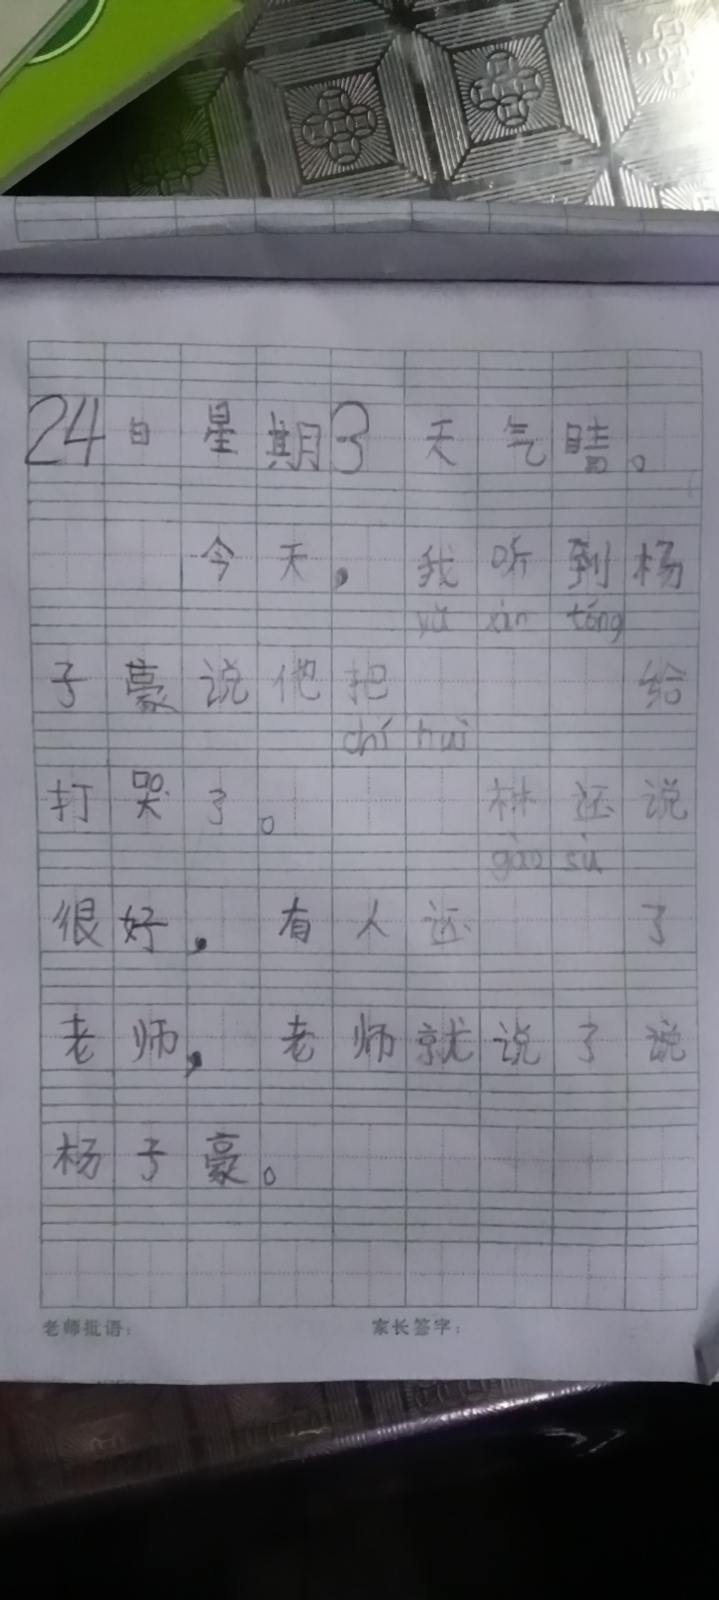 24日星期3天气晴。
今天,我听到杨
yǔ xàn tóng
子豪说他把 给
chí huì
打哭了。 林还说
gào sù
很好,有人还 了
老师,老师就说了说
杨子豪。
老师批语: 家长签字: